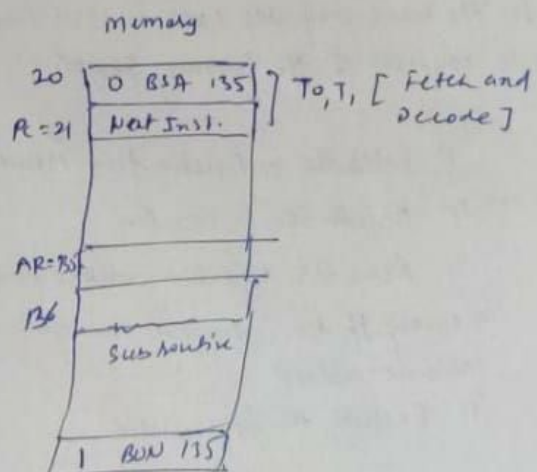 memory
20 0 BSA 135 ] T0, T1 [ Fetch and Decode ]
PC = 21 Next Inst.
AR = 135
136
Subroutine
1 BUN 135